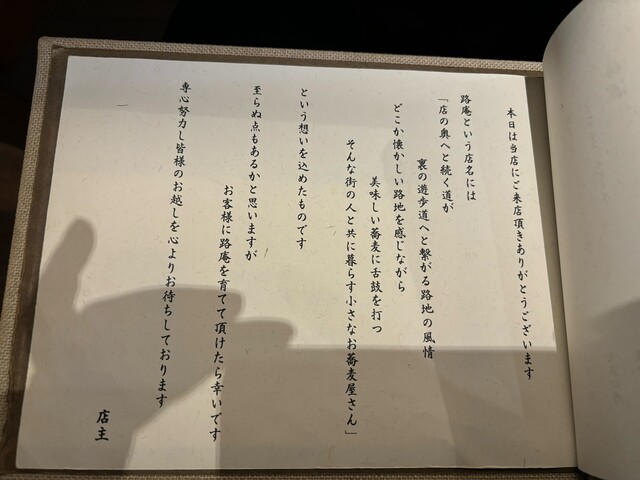 本日は当店にご来店頂きありがとうございます
路庵という店名には
「店の奥へと続く道が
裏の遊歩道へと繋がる路地の風情
どこか懐かしい路地を感じながら
美味しい蕎麦に舌鼓を打つ
そんな街の人と共に暮らす小さなお蕎麦屋さん」
という想いを込めたものです
至らぬ点もあるかと思いますが
お客様に路庵を育てて頂けたら幸いです
専心努力し皆様のお越しを心よりお待ちしております
店主